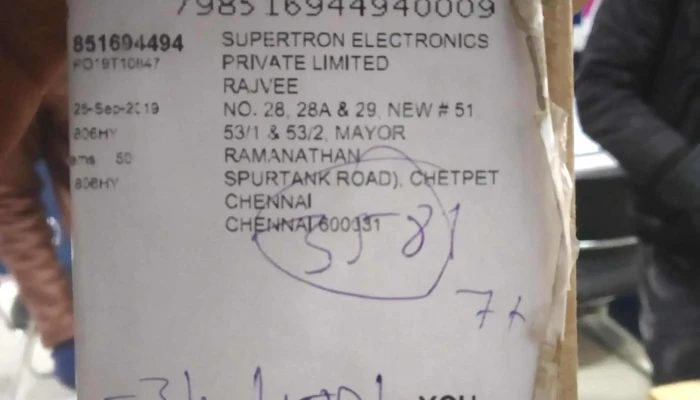 798516944940009
851694494 SUPERTRON ELECTRONICS
PO19T10847 PRIVATE LIMITED
RAJVEE
25-Sep-2019 NO. 28, 28A & 29, NEW # 51
806HY 53/1 & 53/2, MAYOR
ems 50 RAMANATHAN
806HY SPURTANK ROAD), CHETPET
CHENNAI
CHENNAI 600031
3581
YOU